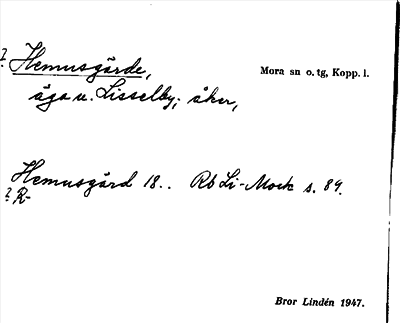 ? Hemusgårde, Mora sn o. tg, Kopp. l.
äga u. Lisselby; åker,
Hemusgård 18.. Rb Li-Mork s. 89.
? R-
Bror Lindén 1947.